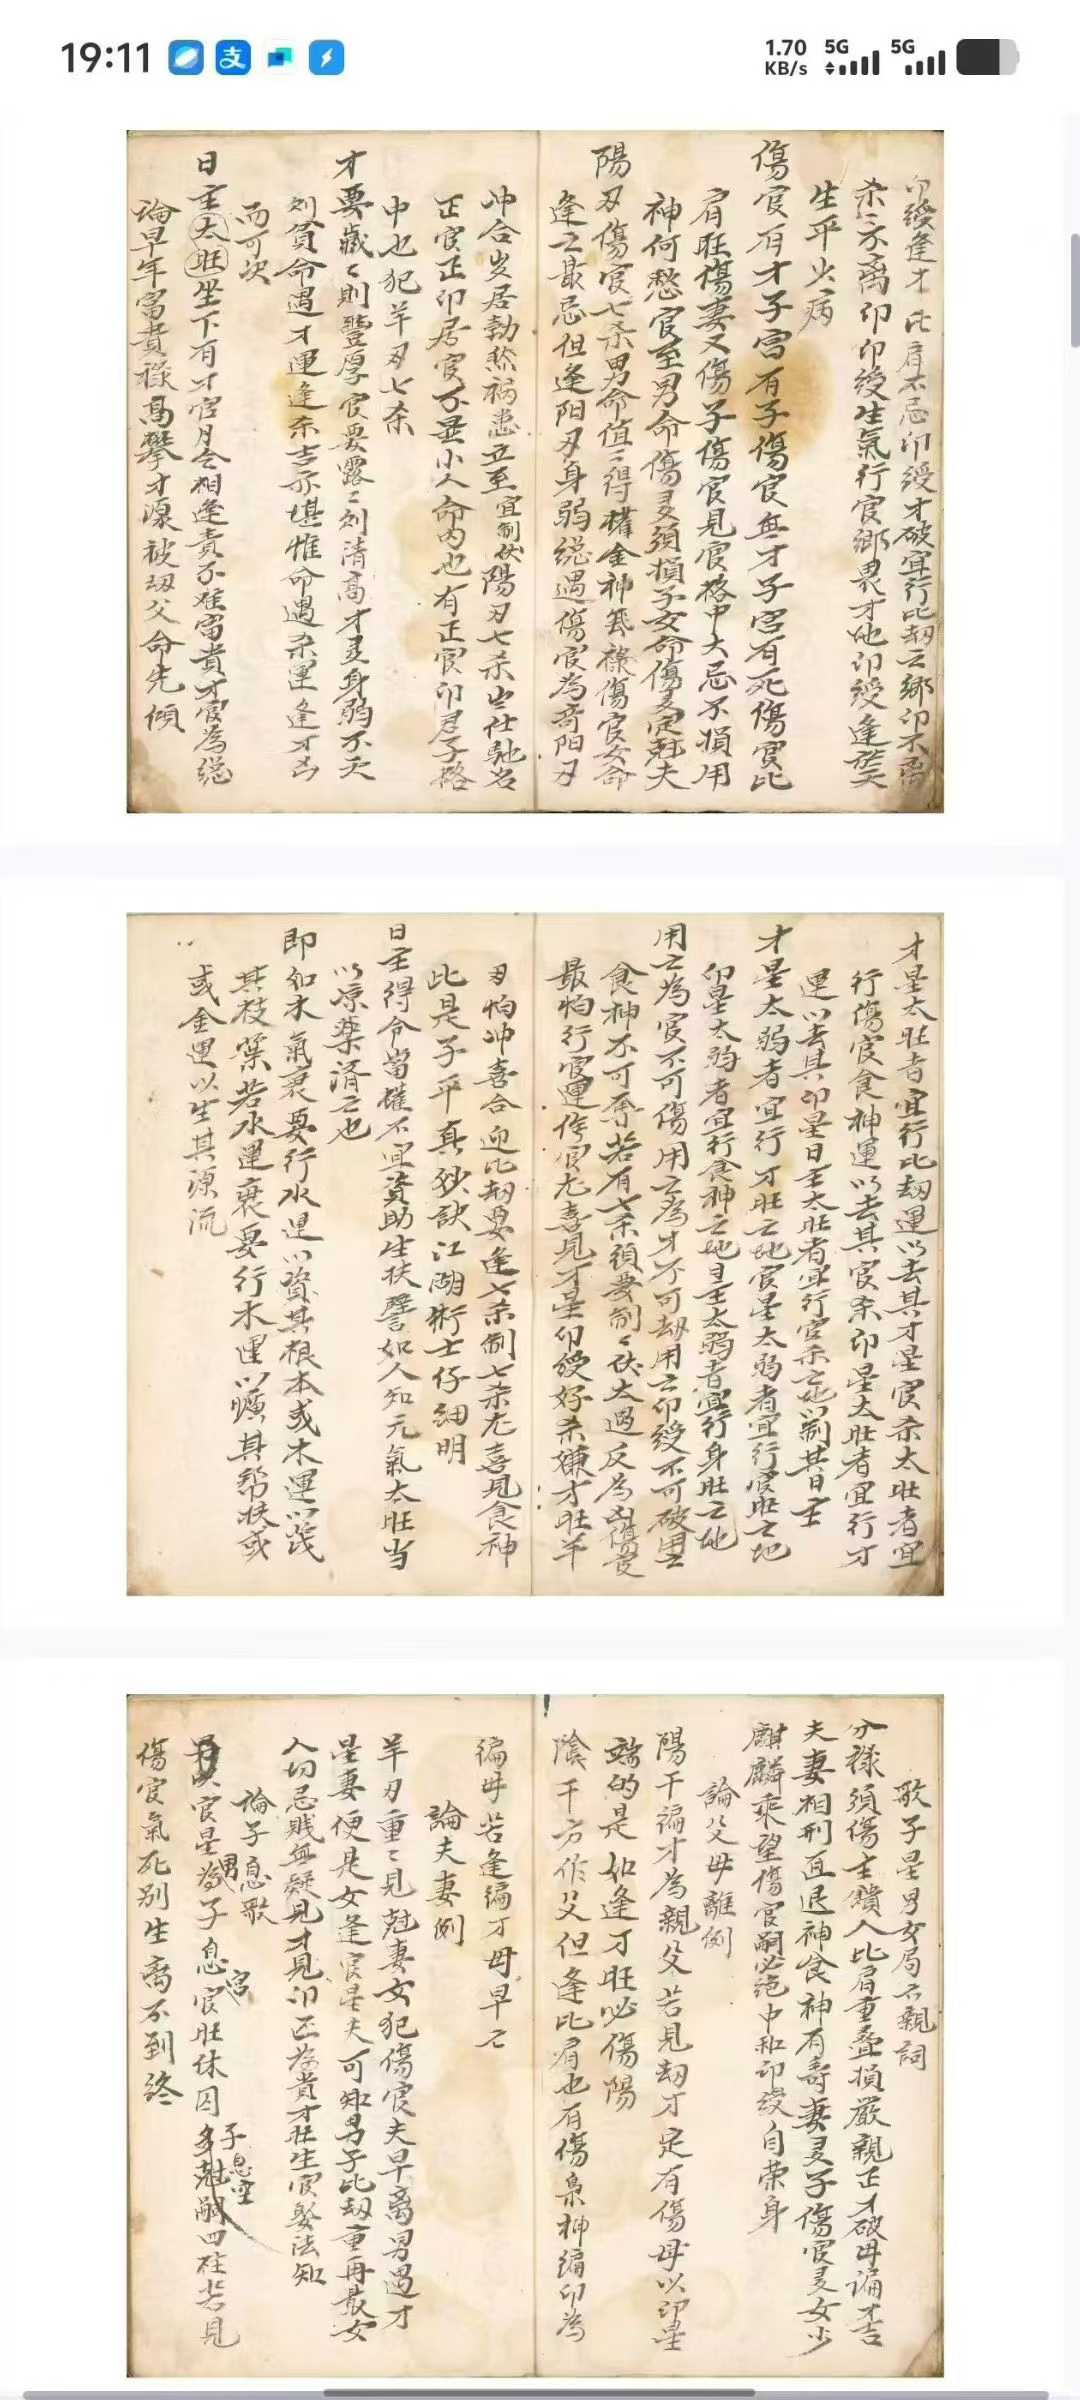 19:11
1.70 KB/s 5G 5G
印綬逢才比肩不忌印綬才破宜行比劫之鄉印不离
杀不离印印綬生氣行官鄉畏才地印綬逢
生平少病
傷官有才子宮有子傷官無才子宮有死傷官比
肩旺傷妻又傷子傷官見官格中大忌不損用
神何愁官至男命傷多須損子女命傷多定尅夫
陽刃傷官七杀男命值〻得權金神歸祿傷官女命
逢之最忌但逢阳刃身弱總遇傷官為奇阳刃
冲合岁居勃然祸患立至宜制伏陽刃七杀出仕馳名
正官正印居官不畏小人命內也有正官印君子格
中也犯羊刃七杀
才要藏〻則豐厚官要露〻則清高才多身弱不夭
則貧命遇才運逢杀吉亦堪惟命遇杀運逢才凶
而可决
日主太旺坐下有才官月令相逢貴不难富貴才官為總
論早年富貴祿高攀才源被刼父命先傾
才星太旺者宜行比劫運以去其才星官杀太旺者宜
行傷官食神運以去其官杀印星太旺者宜行才
運以去其印星日主太旺者宜行官杀之地以制其日主
才星太弱者宜行才旺之地官星太弱者宜行官旺之地
印星太弱者宜行食神之地日主太弱者宜行身旺之地
用之為官不可傷用之為才不可劫用之印綬不可破用之
食神不可奪若有七杀須要制〻伏太過反為凶傷官
最怕行官運傷官尤喜見才星印綬好杀嫌才旺羊
刃怕冲喜合迎比劫要逢七杀制七杀尤喜見食神
此是子平真妙訣江湖術士仔細明
日主得令當權不宜資助生扶譬如人知元氣太旺当
以凉藥済之也
即如木氣衰要行水運以資其根本或木運以茂
其枝葉若水運衰要行木運以曠其帮扶或
或金運以生其源流
歌子星男女局六親詞
分祿須傷主饋人比肩重叠損嚴親正才破母偏才吉
夫妻相刑直退神食神有壽妻多子傷官多女少
麒麟乘望傷官嗣必绝中和印綬自荣身
論父母離例
陽干偏才為親父若見劫才定有傷母以印星
端的是如逢才旺必傷陽
陰干方作父但逢比肩也有傷梟神偏印為
偏母若逢偏才母早亡
論夫妻例
羊刃重〻見尅妻女犯傷官夫早离男遇才
星妻便是女逢官星夫可知男子比劫重再娶女
人切忌賎無疑見才見印正為貴才旺生官娶法知
論子息歌
男以官星為子息官旺休囚多尅嗣四柱若見
宮
子息空
傷官氣死别生离不到终